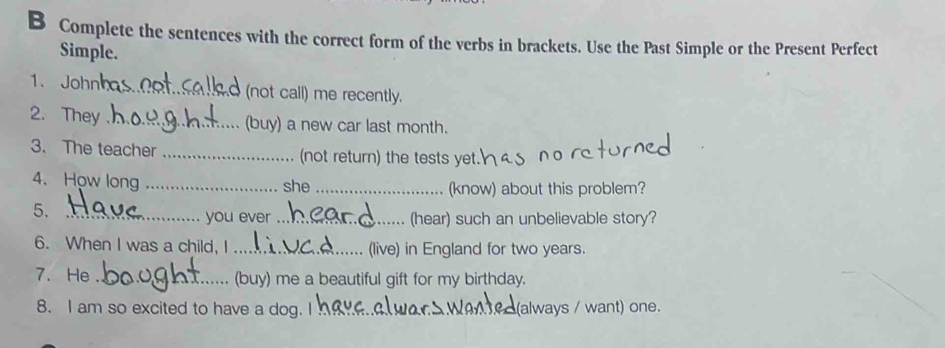 B Complete the sentences with the correct form of the verbs in brackets. Use the Past Simple or the Present Perfect
Simple.
1. John has not called (not call) me recently.
2. They hought (buy) a new car last month.
3. The teacher .......................... (not return) the tests yet. has no returned
4. How long .......................... she ......................... (know) about this problem?
5. Have you ever heard (hear) such an unbelievable story?
6. When I was a child, I lived (live) in England for two years.
7. He bought (buy) me a beautiful gift for my birthday.
8. I am so excited to have a dog. I have alwars wanted (always / want) one.